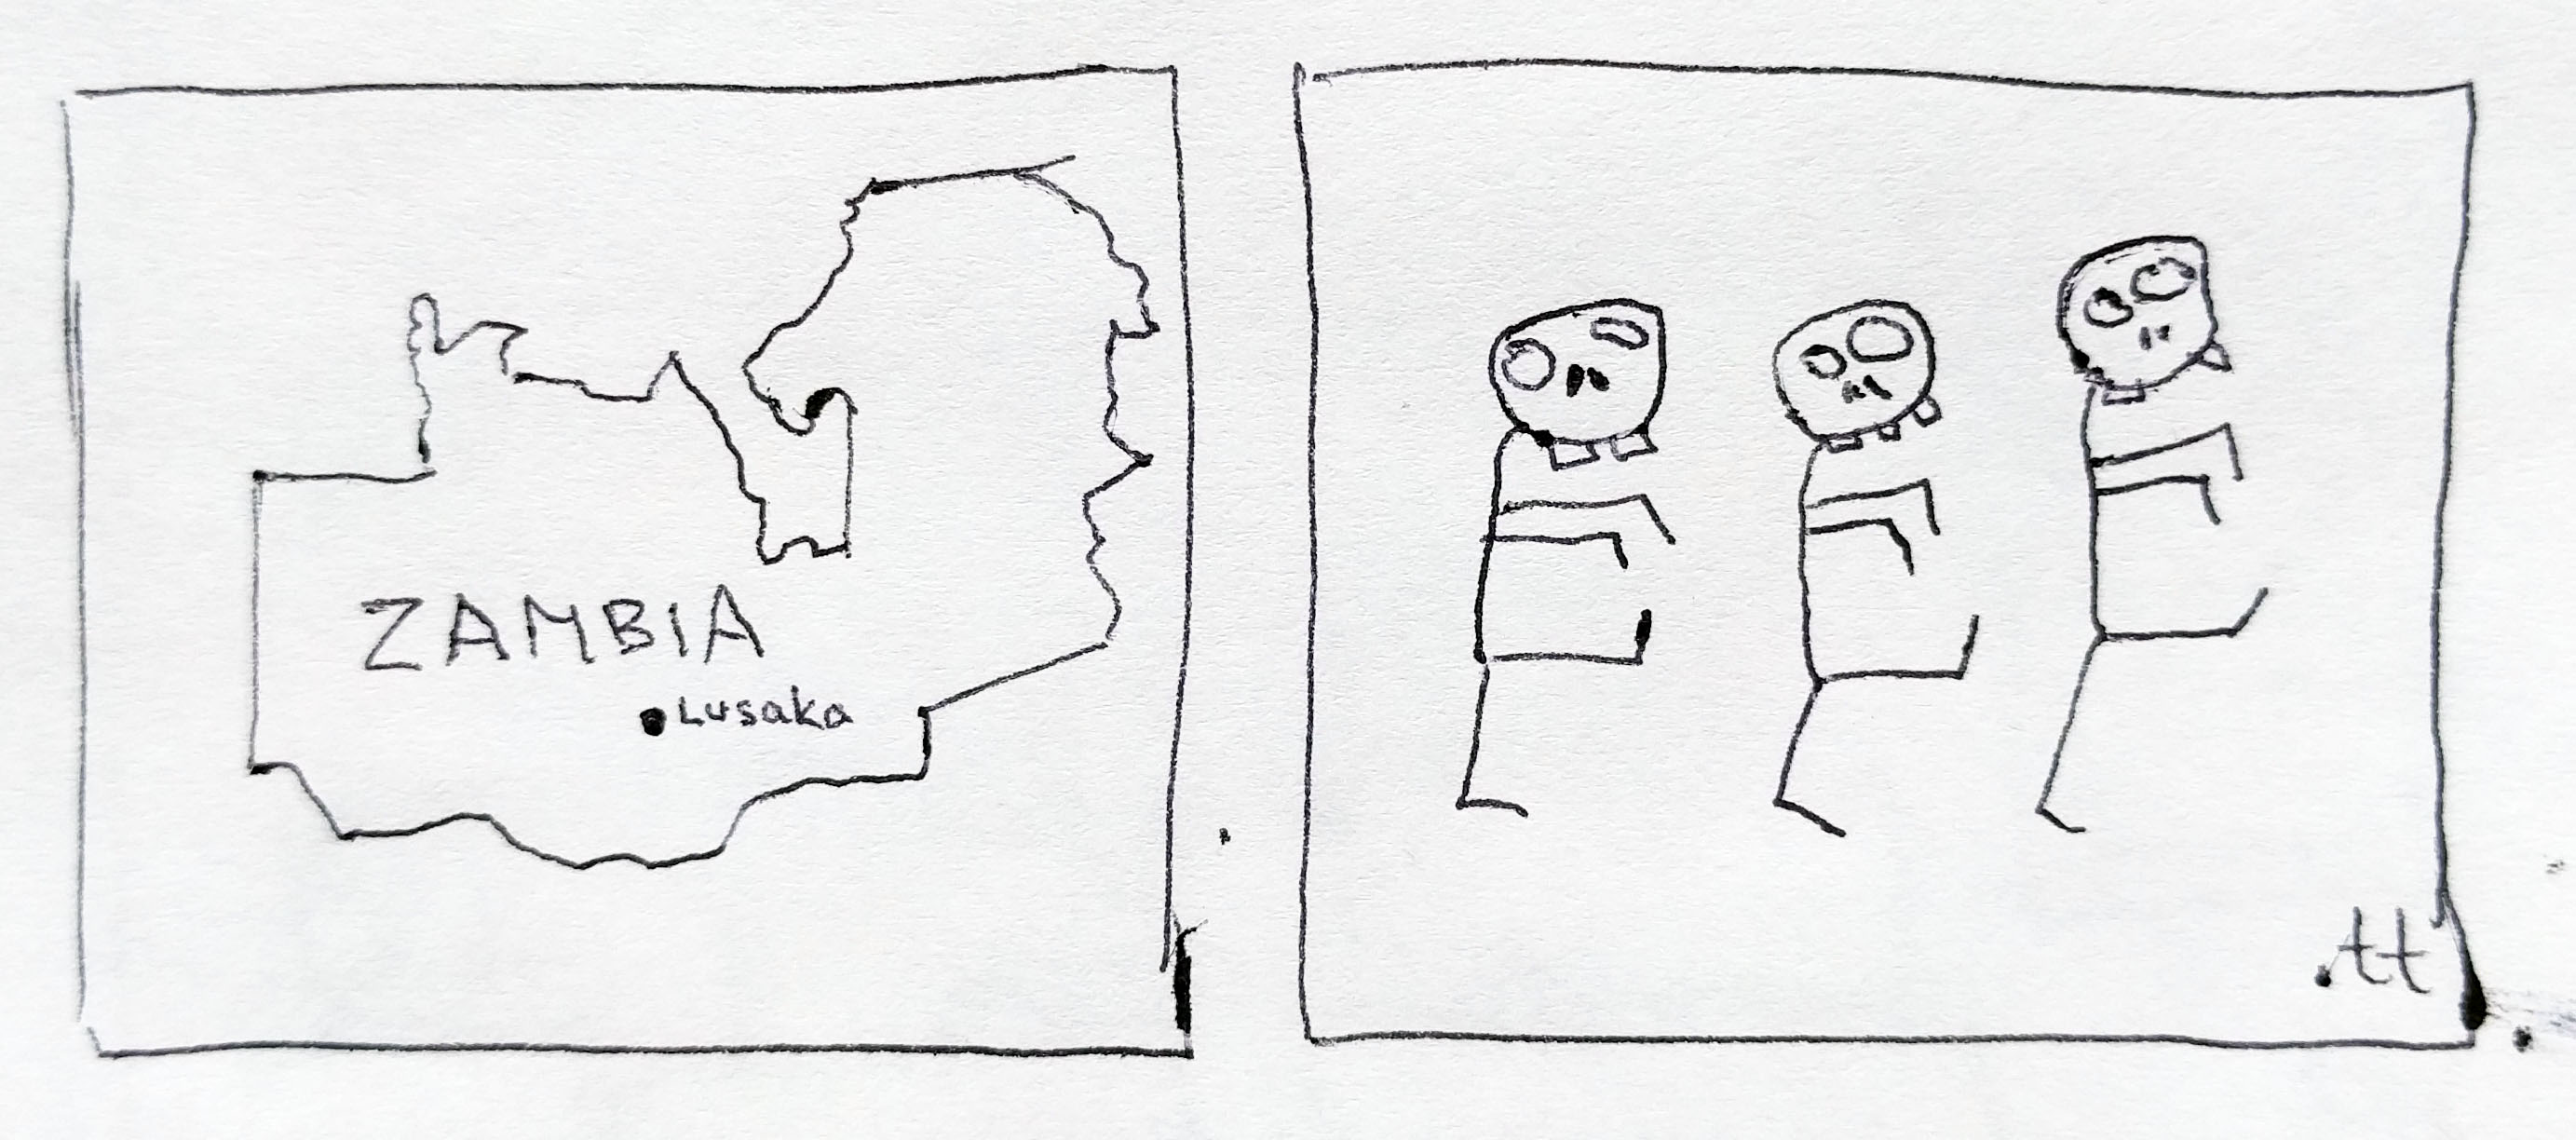 ZAMBIA
Lusaka
.tt